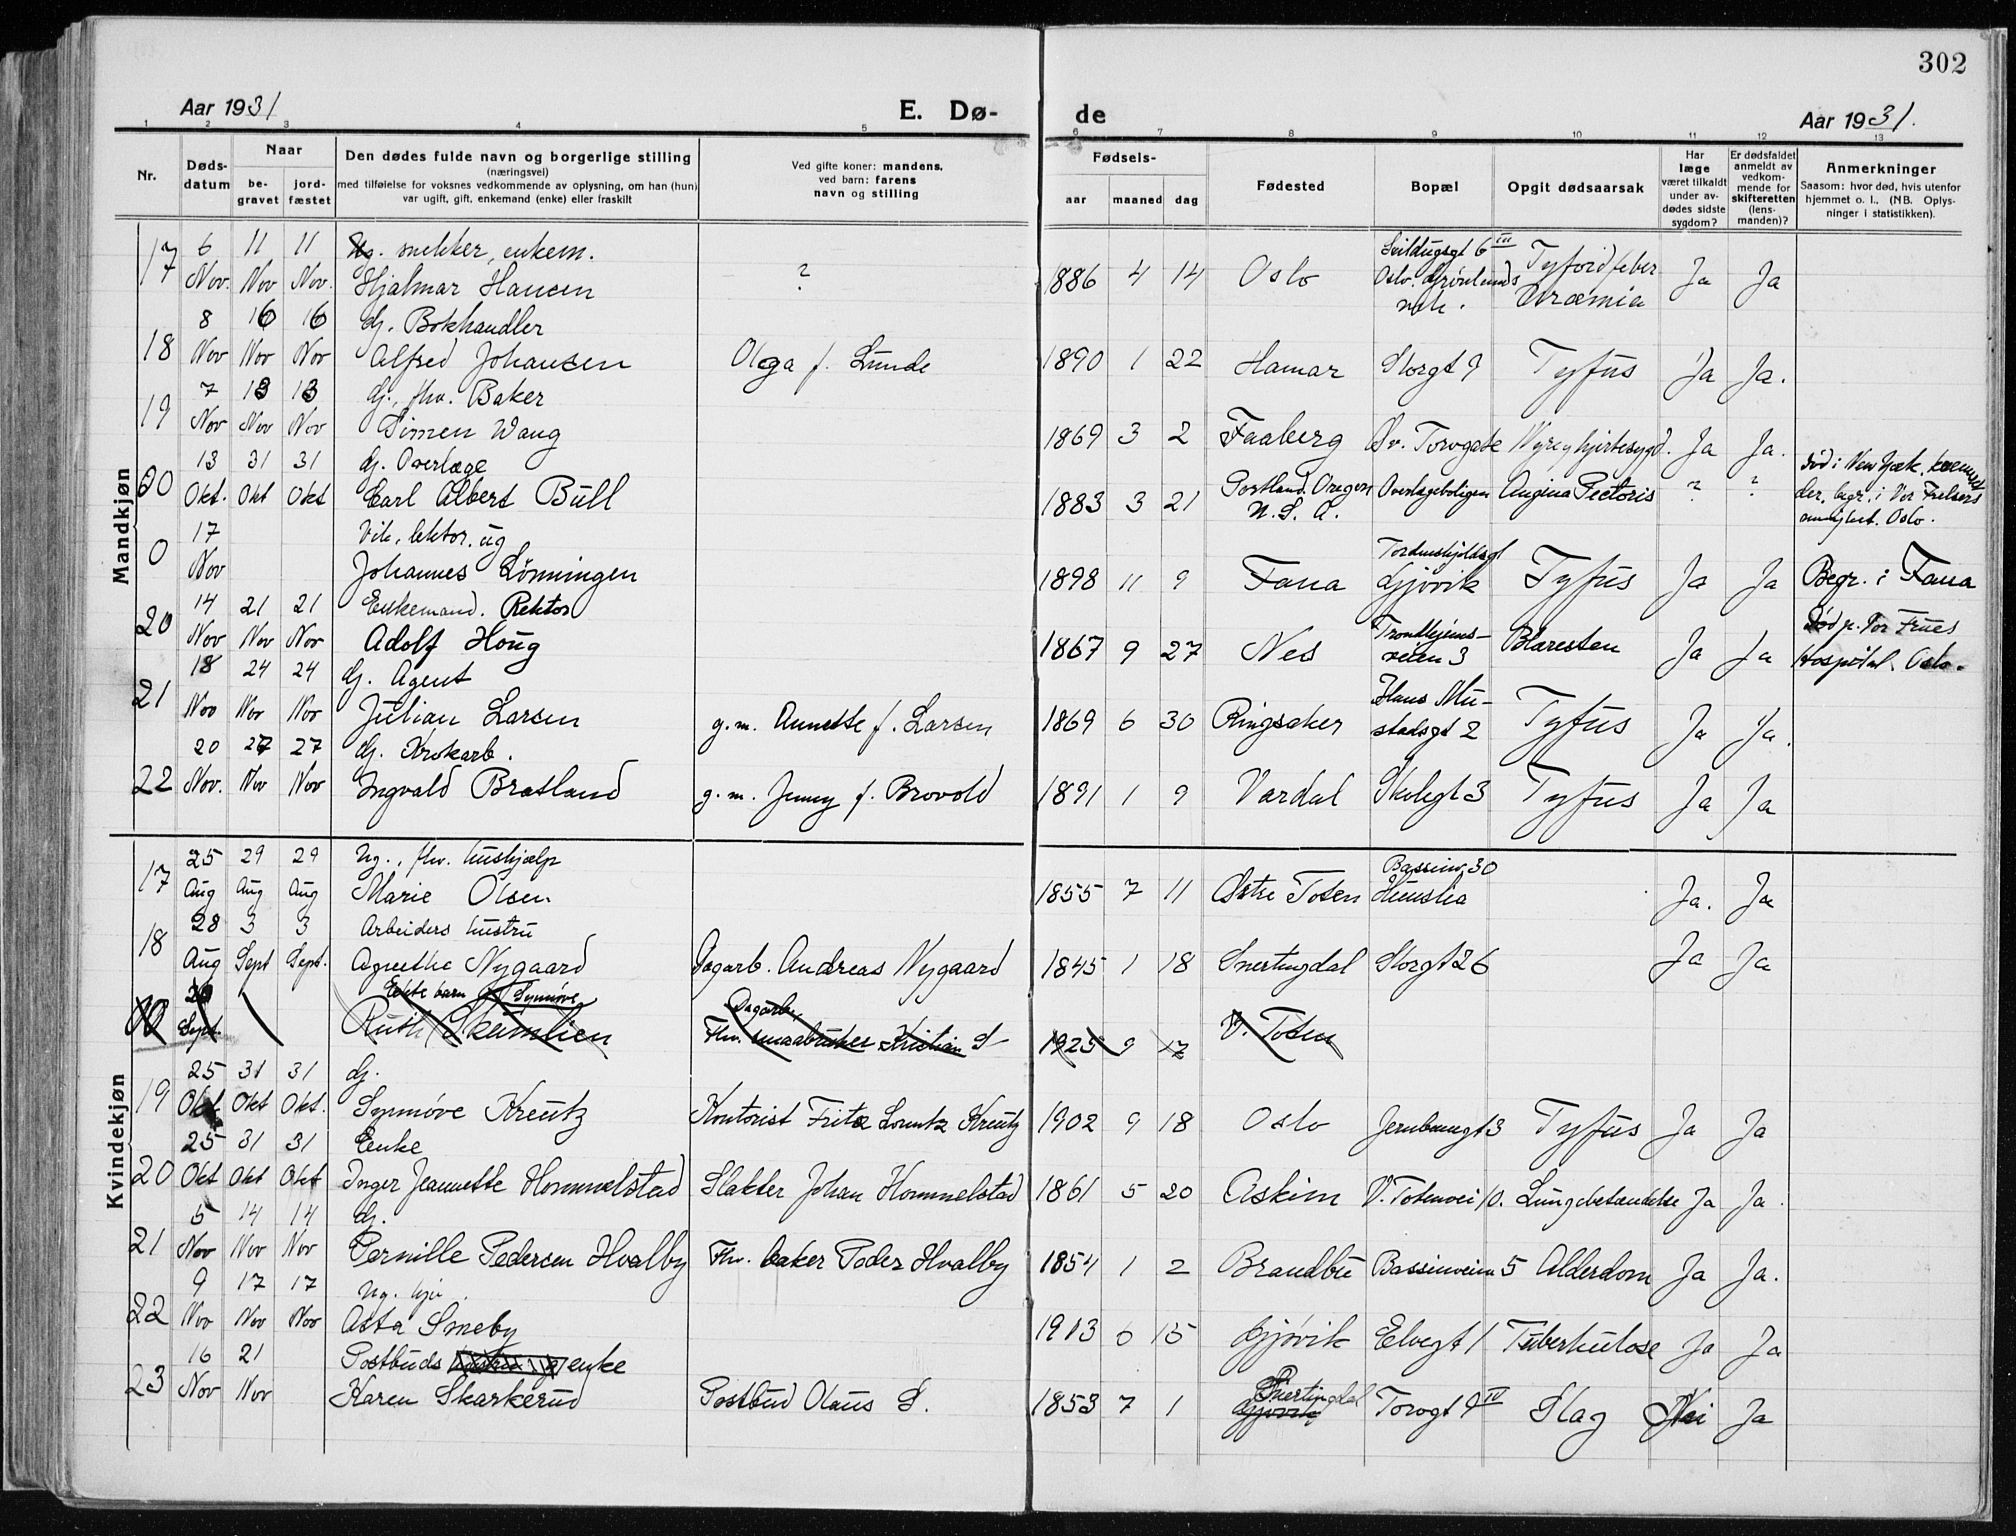 302
Aar 1931
E. Dø-
de
Aar 1931.
1 2 3 4 5 6 7 8 9 10 11 12 13
Nr.
Døds-
datum
Naar
be-
gravet
jord-
fæstet
Den dødes fulde navn og borgerlige stilling
(næringsvei)
med tilføielse for voksnes vedkommende av oplysning, om han (hun)
var ugift, gift, enkemand (enke) eller fraskilt
Ved gifte koner: mandens,
ved barn: farens
navn og stilling
Fødsels-
aar maaned dag
Fødested
Bopæl
Opgit dødsaarsak
Har
læge
været tilkaldt
under av-
dødes sidste
sygdom?
Er dødsfaldet
anmeldt av
vedkom-
mende for
skifteretten
(lens-
manden)?
Anmerkninger
Saasom: hvor død, hvis utenfor
hjemmet o. l., (NB. Oplys-
ninger i statistikken).
Mandkjøn
17 6 11 11 snekker, enkem. Seildugsgt 6 III Tyfoidfeber
Nov. Nov Nov. Hjalmar Hansen ? 1886 4 14 Oslo Oslo. Uræmia Ja Ja
8 16 16 Gj. Bokhandler
18 Nov Nov Nov Alfred Johansen Olga f. Lunde 1890 1 22 Hamar Storgt 9 Tyfus Ja Ja.
7 13 13 Gj., fhv. Baker
19 Nov Nov Nov Simen Wang 1869 3 2 Faaberg Øv. Torvgate Nyre og hjertesygd. Ja Ja.
13 31 31 Gj. Overlæge
00 Okt. Okt Okt Carl Albert Bull 1883 3 21 Portland. Oregon Overlægeboligen Angina Pectoris ? ? Død i New York,
U. S. A. der, begr. i Vor Frelsers
Oslo.
17 Vik. lektor, ug Tordenskjoldsgt
0 Nov Johannes Lønningen 1898 11 9 Fana Gjøvik Tyfus Ja Ja Begr. i Fana
14 21 21 Enkemand. Rektor
20 Nov Nov Nov Adolf Houg 1867 9 27 Nes Trondhjems- Blæresten Ja Ja Død p. Vor Frues
veien 3 Hospital. Oslo.
18 24 24 Gj. Agent Hans Mu-
21 Nov Nov Nov Julian Larsen g. m. Annette f. Larsen 1869 6 30 Ringsaker stadsgt 2 Tyfus Ja Ja.
20 27 27 Gj. Krokarb.
22 Nov. Nov Nov Ingvald Bratland g. m. Jenny f. Brovold 1891 1 9 Vardal Skolegt 3 Tyfus Ja Ja
Kvindekjøn
17 25 29 29 Ug., fhv. hushjælp Bassinv. 30
Aug Aug Aug Marie Olsen 1855 7 11 Østre Toten Hunslia Ja. Ja
28 3 3 Arbeiders hustru
18 Aug Sept Sept. Agnethe Nygaard Dagarb. Andreas Nygaard 1845 1 18 Snertingdal Storgt 26 Ja Ja
Ekte barn Synnøve Dagarb.
Sept. Ruth Skumlien Fhv. smaabruker Kristian S 1925 9 17 V. Toten
25 31 31 Gj.
19 Okt. Okt Okt. Synnøve Kreutz Kontorist Fritz Lorentz Kreutz 1902 9 18 Oslo Jernbanegt 3 Tyfus Ja Ja
25 31 31 Enke
20 Okt Okt Okt Inger Jeannette Hommelstad Slakter Johan Hommelstad 1861 5 20 Askim V. Totenvei 10. Lungebetændelse Ja Ja.
5 14 14 Gj.
21 Nov Nov Nov Pernille Pedersen Hvalby Fhv. baker Peder Hvalby 1854 1 2 Brandbu Bassinveien 5 Alderdom Ja Ja.
9 17 17 Ug.
22 Nov Nov Nov Asta Smeby 1913 6 15 Gjøvik Elvegt 1 Tuberkulose Ja Ja
16 21 Postbuds enke
23 Nov Nov Karen Skarkerud Postbud Olaus S. 1853 7 1 Snertingdal Torvgt 9 IV Slag Nei Ja
Gjøvik